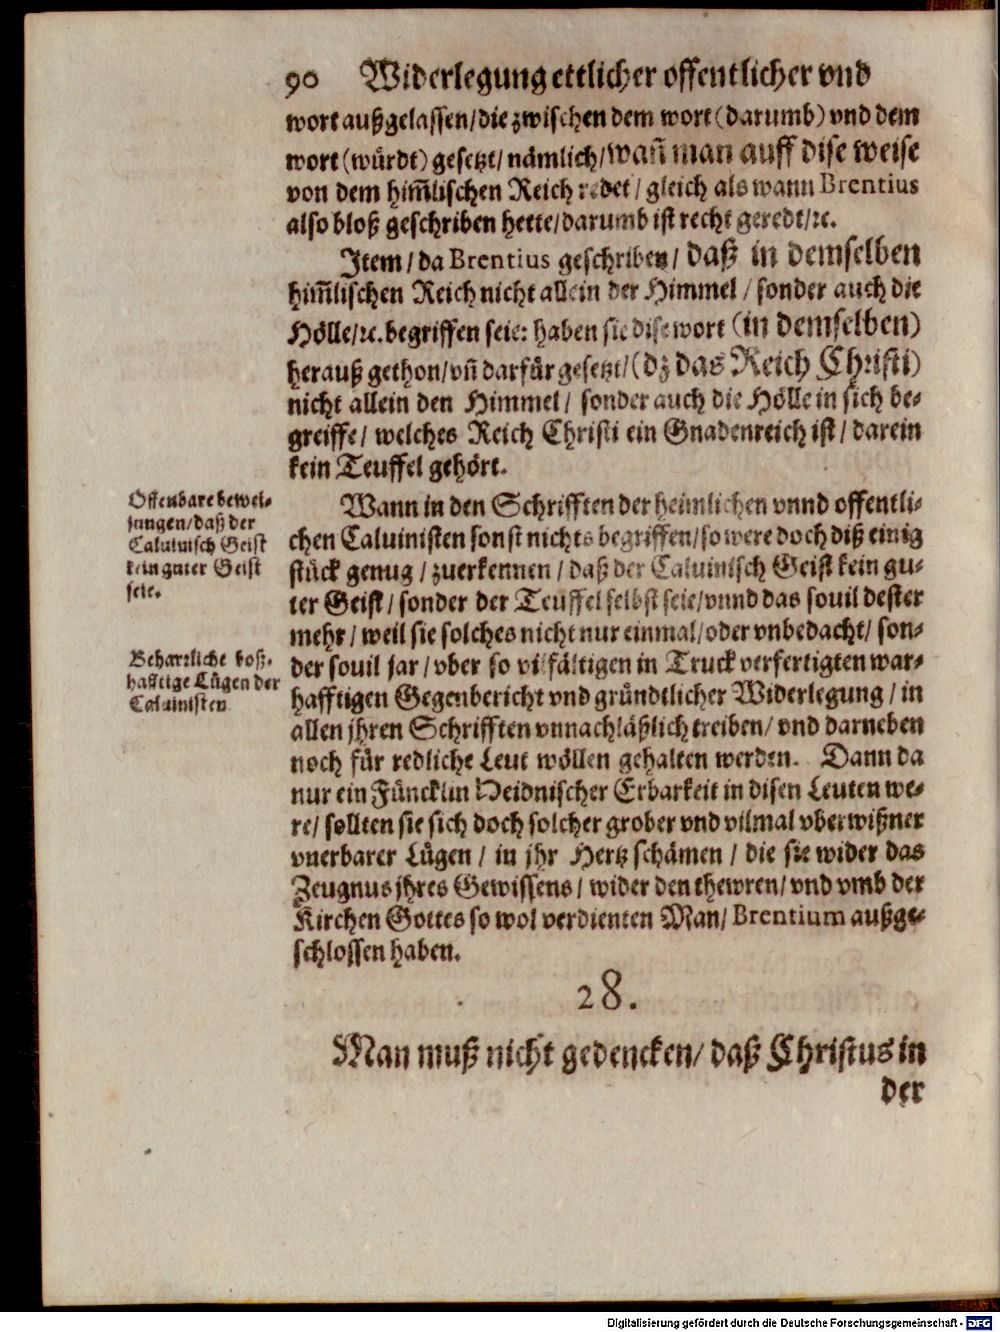 90 Widerlegung ettlicher offentlicher vnd
wort außgelassen/die zwischen dem wort (darumb) vnd dem
wort (würdt) gesetzt/ nämlich/wañ man auff dise weise
von dem him̃lischen Reich redet/ gleich als wann Brentius
also bloß geschriben hette/darumb ist recht geredt/ꝛc.
Jtem/ da Brentius geschriben/ daß in demselben
him̃lischen Reich nicht allein der Himmel/ sonder auch die
Hölle/ꝛc. begriffen seie: haben sie dise wort (in demselben)
herauß gethon/vñ darfür gesetzt/(dz das Reich Christi)
nicht allein den Himmel/ sonder auch die Hölle in sich be-
greiffe/ welches Reich Christi ein Gnadenreich ist/ darein
kein Teuffel gehört.
Offenbare bewei-
sungen/daß der
Caluinisch Geist
kein guter Geist
seie.
Wann in den Schrifften der heimlichen vnnd offentli-
chen Caluinisten sonst nichts begriffen/so were doch diß einig
stück genug/ zuerkennen/ daß der Caluinisch Geist kein gu-
ter Geist/ sonder der Teuffel selbst seie/vnnd das souil dester
mehr/ weil sie solches nicht nur einmal/oder vnbedacht/ son-
Beharrliche boß-
hafftige Lügen der
Caluinisten
der souil jar/ vber so vilfältigen in Truck verfertigten war-
hafftigen Gegenbericht vnd gründtlicher Widerlegung/ in
allen jhren Schrifften vnnachläßlich treiben/ vnd darneben
noch für redliche Leut wöllen gehalten werden. Dann da
nur ein Füncklin Heidnischer Erbarkeit in disen Leuten we-
re/ sollten sie sich doch solcher grober vnd vilmal vberwißner
vnerbarer Lügen/ in jhr Hertz schämen/ die sie wider das
Zeugnus jhres Gewissens/ wider den thewren/ vnd vmb der
Kirchen Gottes so wol verdienten Man/ Brentium außge-
schlossen haben.
28.
Man muß nicht gedencken/ daß Christus in
der
Digitalisierung gefördert durch die Deutsche Forschungsgemeinschaft - DFG